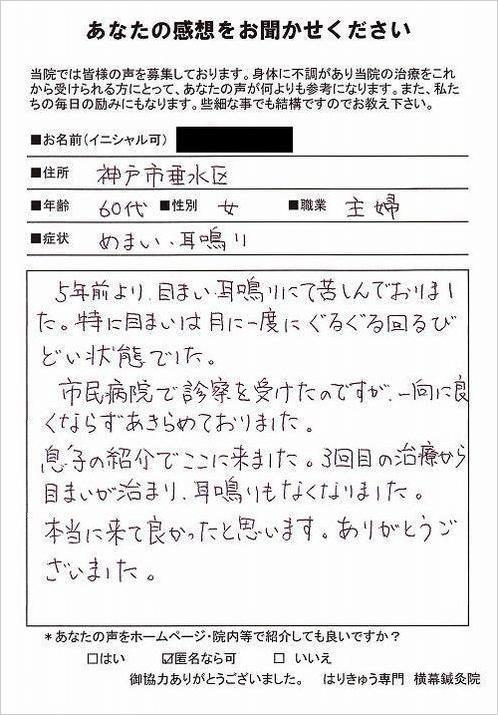 あなたの感想をお聞かせください
当院では皆様の声を募集しております。身体に不調があり当院の治療をこれ
から受けられる方にとって、あなたの声が何よりも参考になります。また、私た
ちの毎日の励みにもなります。些細な事でも結構ですのでお教え下さい。
■お名前(イニシャル可)
■住所 神戸市垂水区
■年齢 60代 ■性別 女 ■職業 主婦
■症状 めまい、耳鳴り
5年前より、目まい、耳鳴りにて苦しんでおりまし
た。特に目まいは月に一度にぐるぐる回るひ
どい状態でした。
市民病院で診察を受けたのですが、一向に良
くならずあきらめておりました。
息子の紹介でここに来ました。3回目の治療から
目まいが治まり、耳鳴りもなくなりました。
本当に来て良かったと思います。ありがとうご
ざいました。
*あなたの声をホームページ・院内等で紹介しても良いですか?
□はい ☑匿名なら可 □ いいえ
御協力ありがとうございました。 はりきゅう専門 横幕鍼灸院